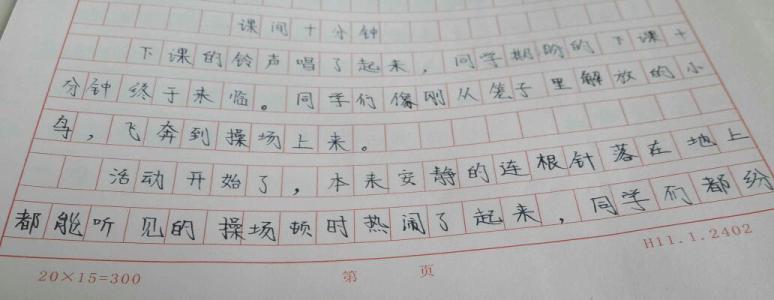 课间十分钟
下课的铃声唱了起来，同学期盼的下课十
分钟终于来临。同学们像刚从笼子里解放的小
鸟，飞奔到操场上来。
活动开始了，本来安静的连根针落在地上
都能听见的操场顿时热闹了起来，同学们都纷
20×15=300 第 页 H11.1.2402